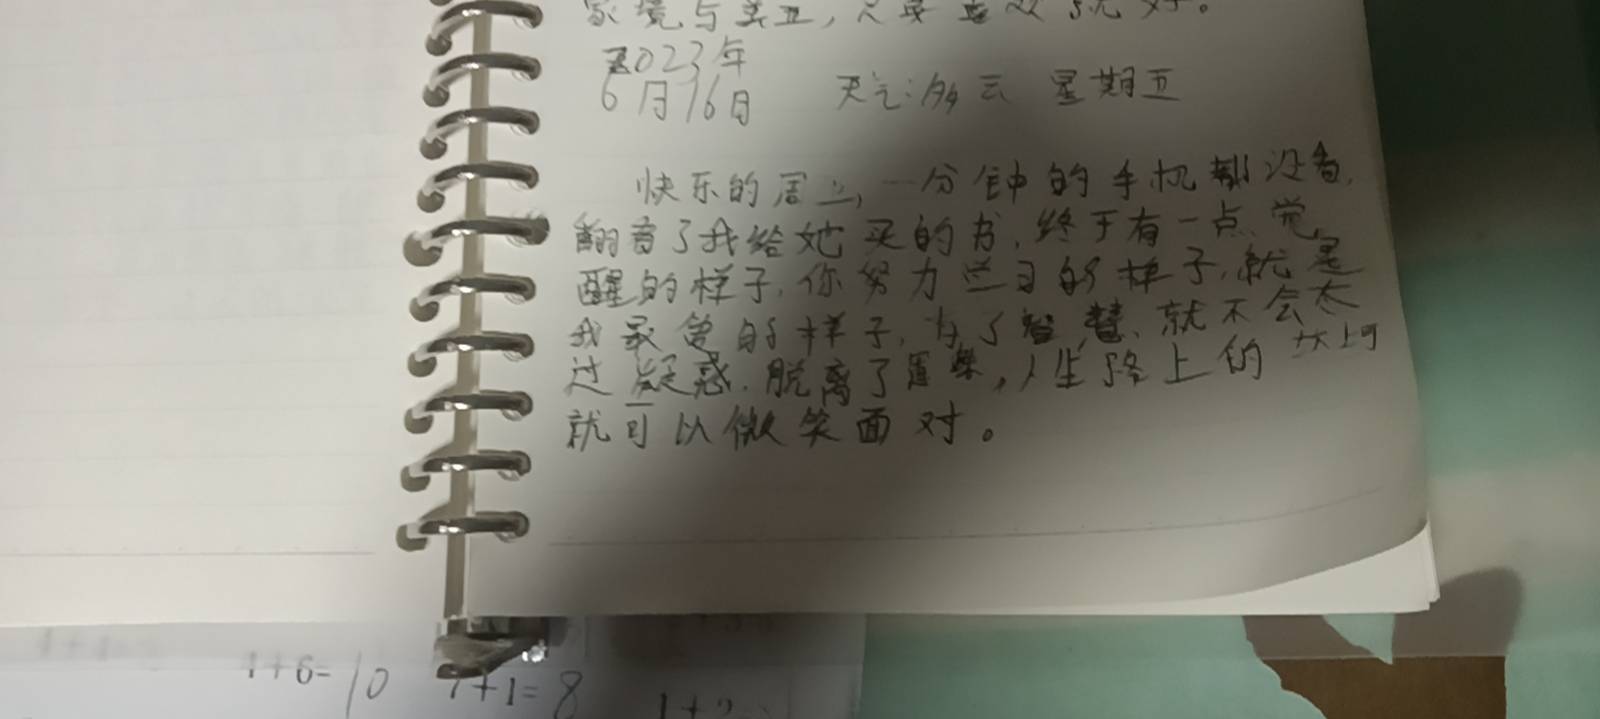 家境与美丑，只要喜欢就好。
2023年
6月16日 天气：多云 星期五
快乐的周五，一分钟的手机都没看，
翻看了我给她买的书，终于有一点觉
醒的样子，你努力学习的样子，就是
我最爱的样子，有了智慧，就不会太
过疑惑，脱离了愚
，人生路上的坎坷
就可以微笑面对。
4+6=10 7+1=8